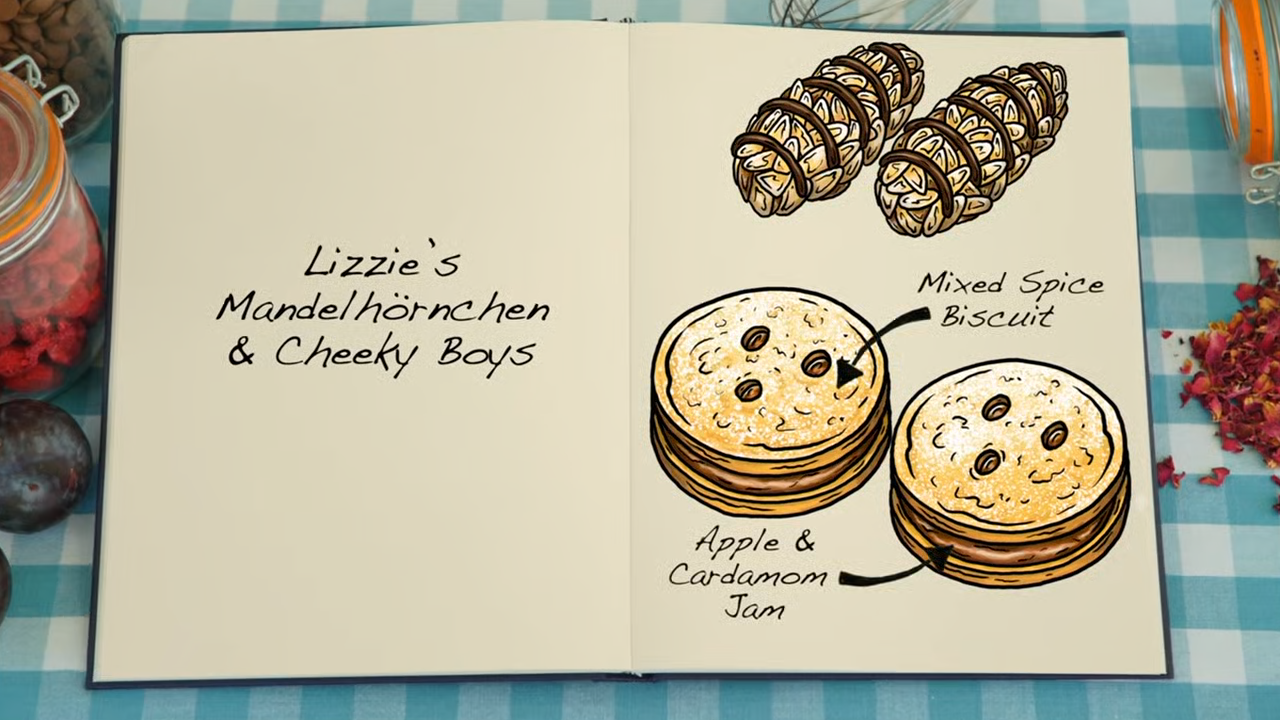 Lizzie's
Mandelhörnchen
& Cheeky Boys
Mixed Spice
Biscuit
Apple &
Cardamom
Jam